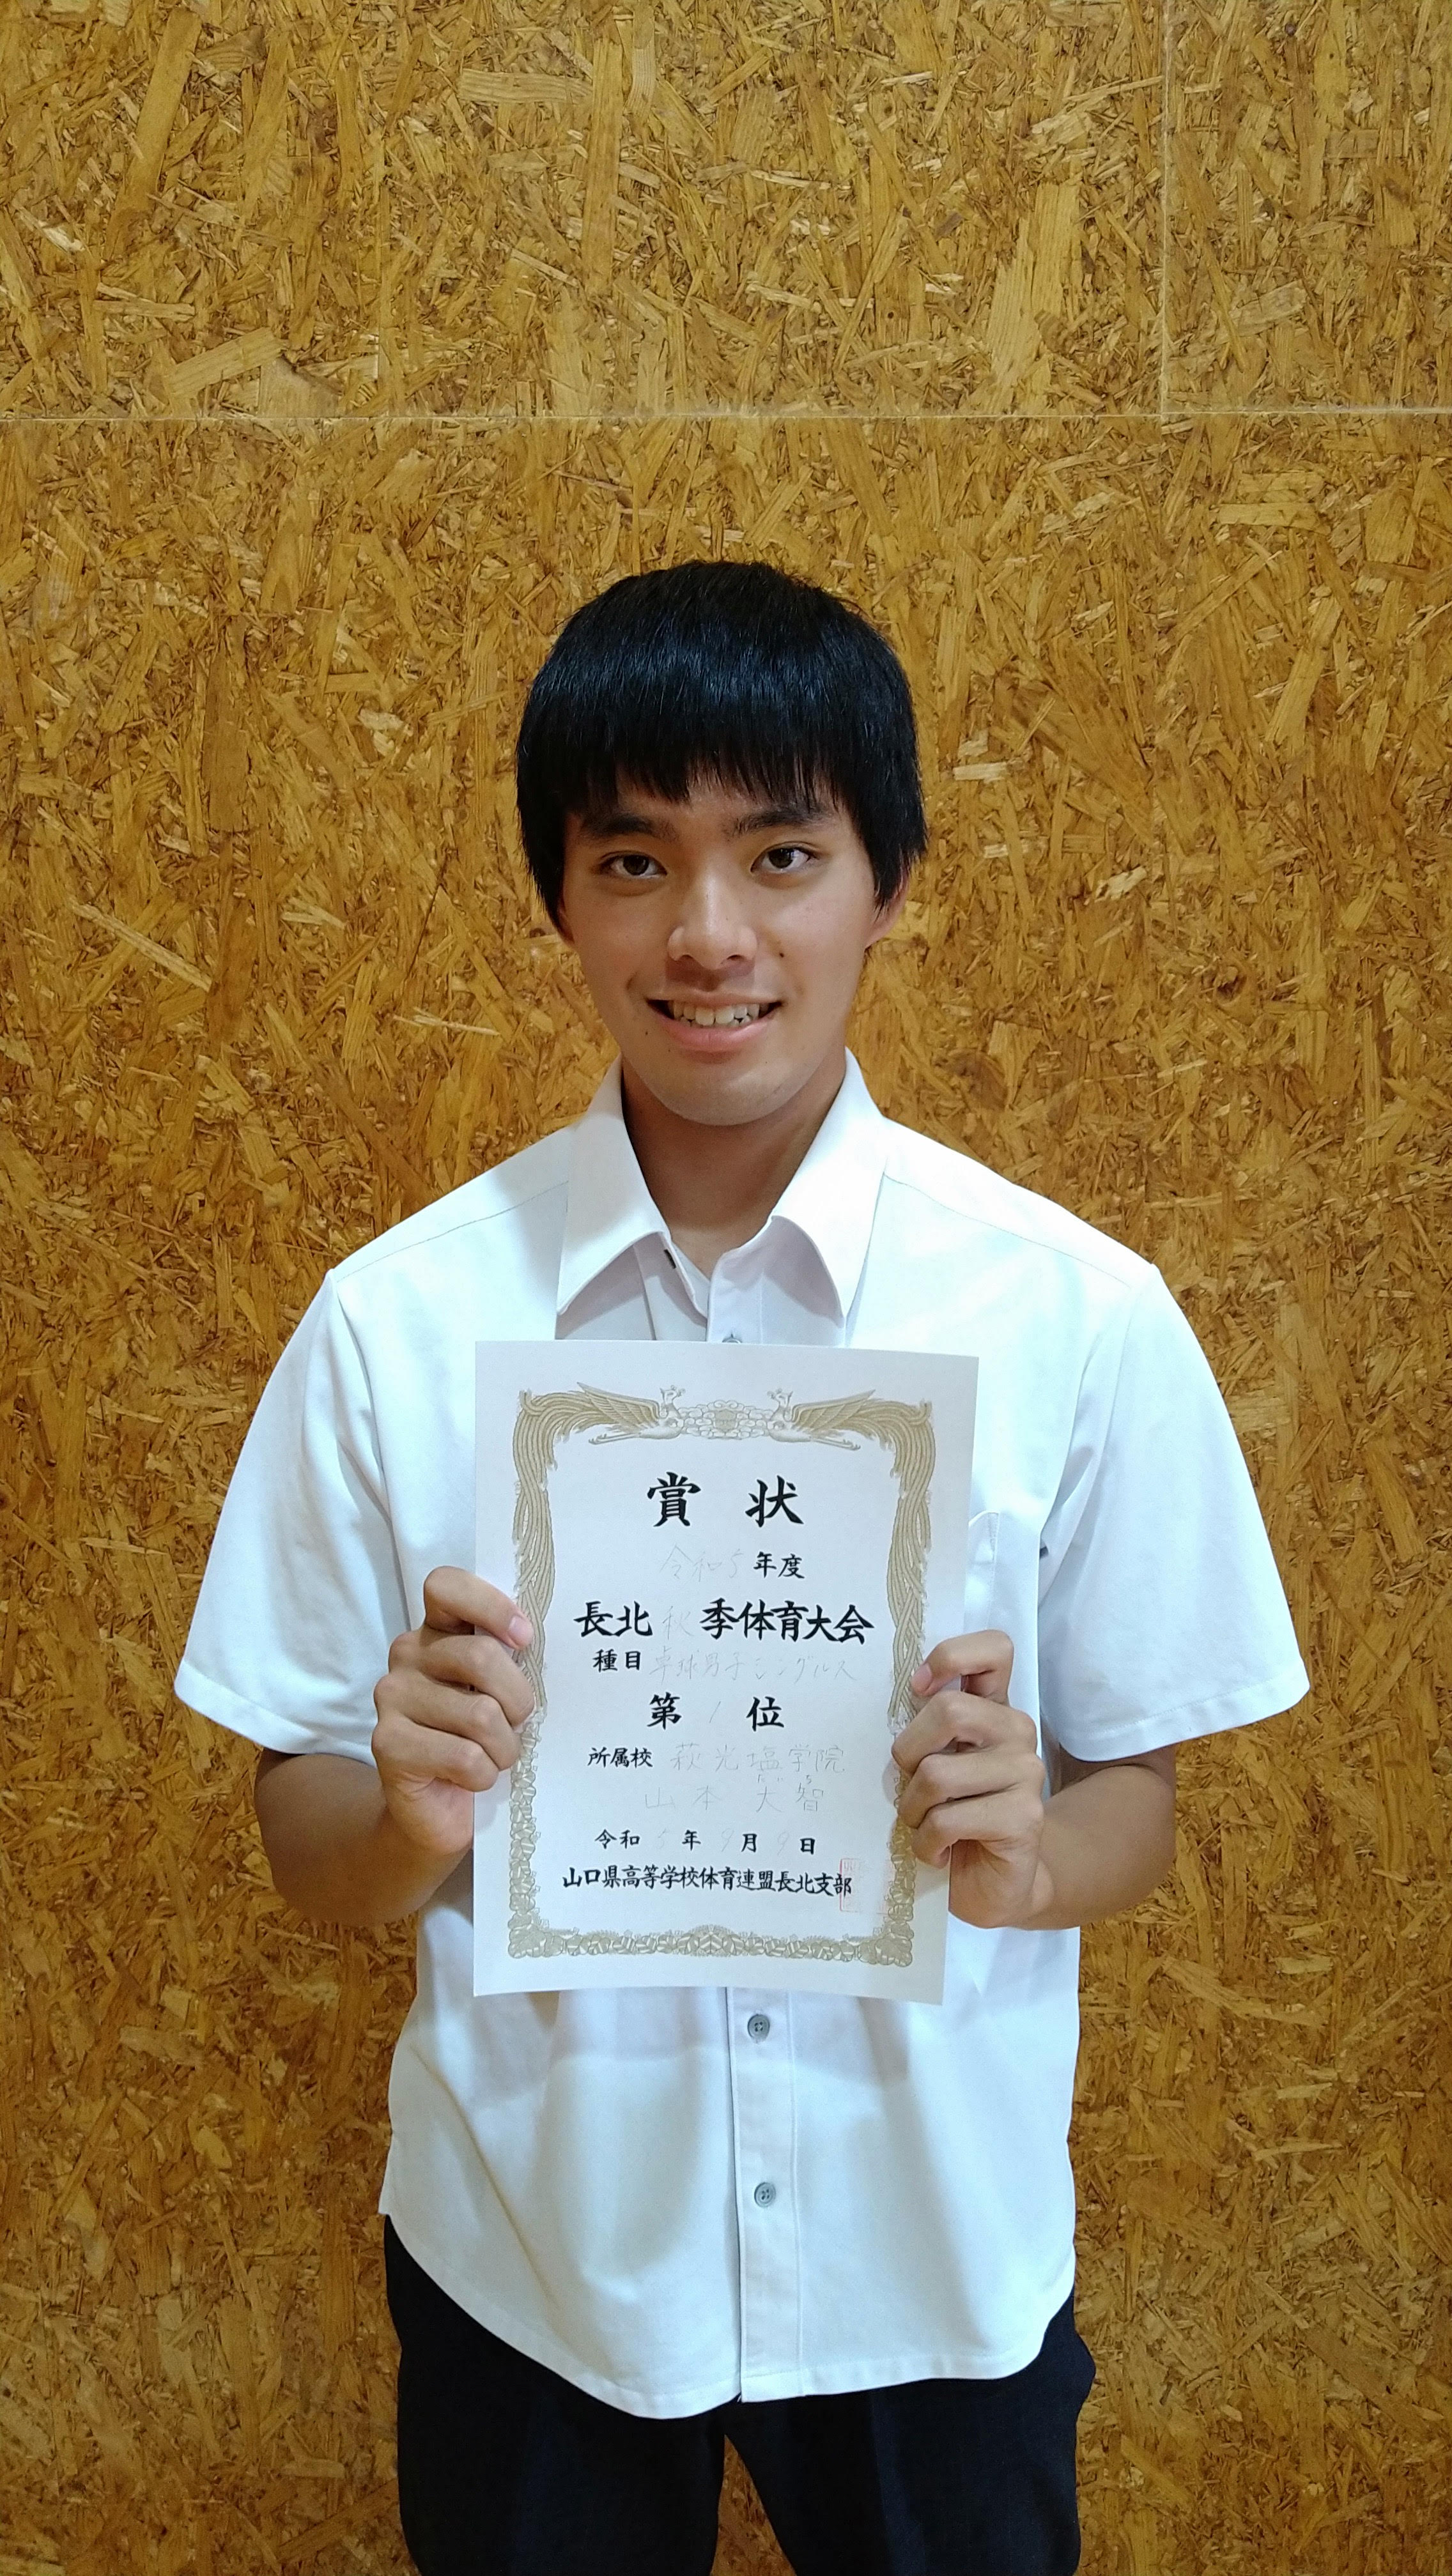 賞状
令和5年度
長北秋季体育大会
種目 卓球男子シングルス
第1位
所属校 萩光塩学院
山本 大智
令和5年9月9日
山口県高等学校体育連盟長北支部